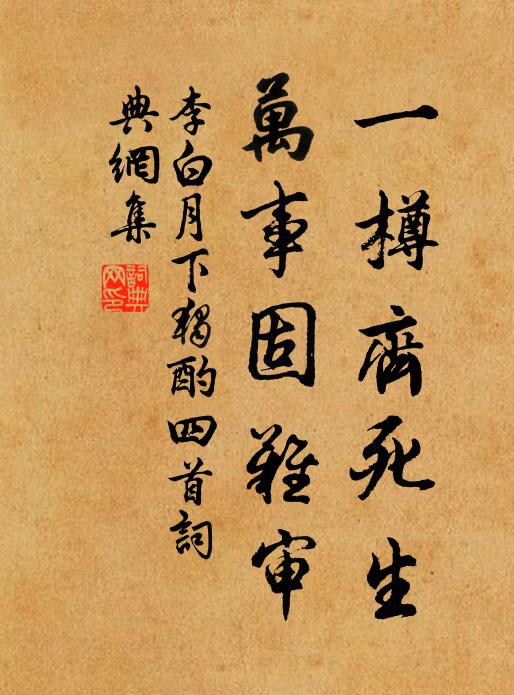 一樽齊死生
萬事固難审
李白月下獨酌四首詞
典網集
詞典
网印